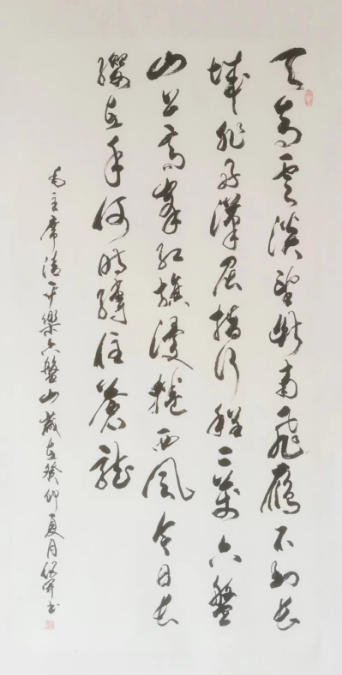 天高雲淡望斷南飛鴈不到長
城非好漢屈指行程二萬六盤
山上高峯紅旗漫捲西風今日長
纓在手何時縛住蒼龍
毛主席清平樂六盤山歲在癸卯夏月書